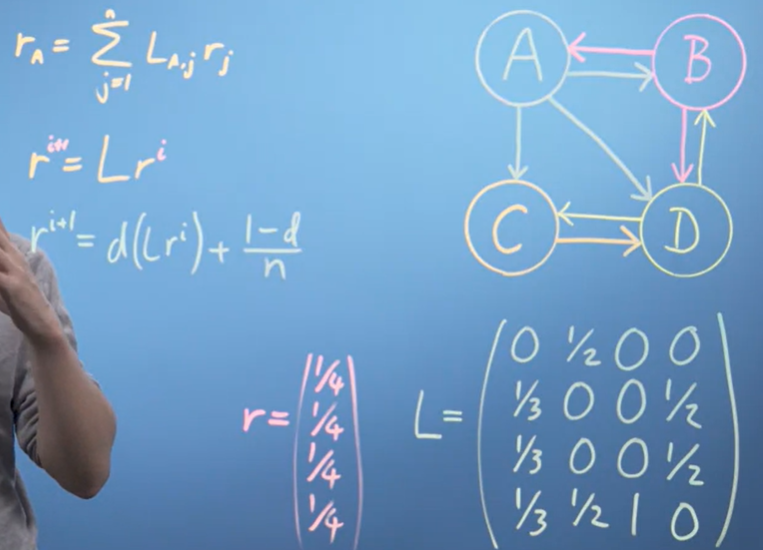 r_A = Σ_{j=1}^{n} L_{A,j} r_j
r^{i+1} = L r^i
r^{i+1} = d(L r^i) + (1-d)/n
A B
C D
r = (1/4 1/4 1/4 1/4)
L = (0 1/2 0 0
1/3 0 0 1/2
1/3 0 0 1/2
1/3 1/2 1 0)